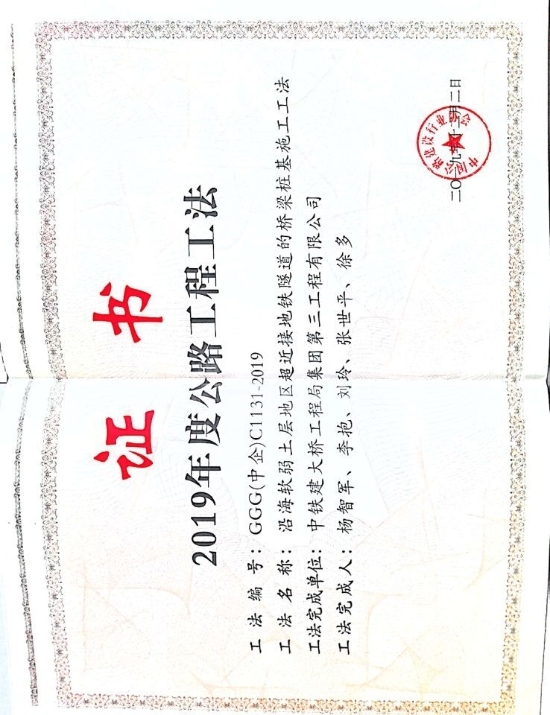 证 书
2019年度公路工程工法
工 法 编 号：GGG(中企)C1131-2019
工 法 名 称：沿海软弱土层地区超近接地铁隧道的桥梁桩基施工工法
工法完成单位：中铁建大桥工程局集团第三工程有限公司
工法完成人：杨智军、李艳、刘玲、张世平、徐多
中国公路建设行业协会
二〇一九年十二月二日